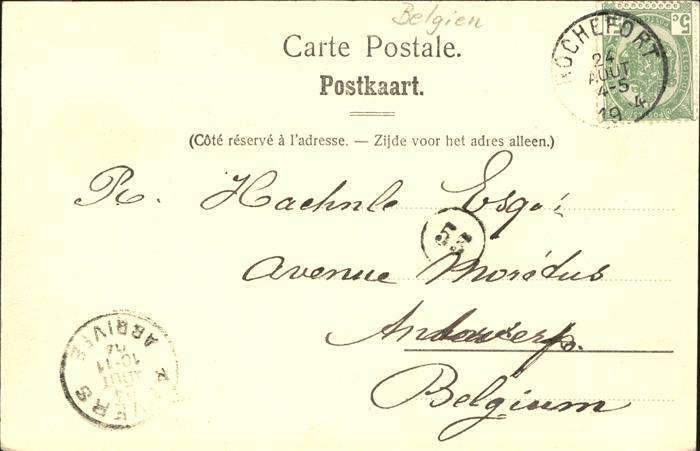 Belgien
Carte Postale.
Postkaart.
(Côté réservé à l'adresse. — Zijde voor het adres alleen.)
ROCHEFORT
24
AOUT
4-5
19 4
5 c
R. Haehnle Esq.
55
Avenue Morétus
Antwerp.
Belgium
ANVERS
AOUT
10-11
04
ARRIVÉE